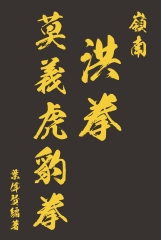 嶺南
洪拳
莫義虎豹拳
葉偉聲編著